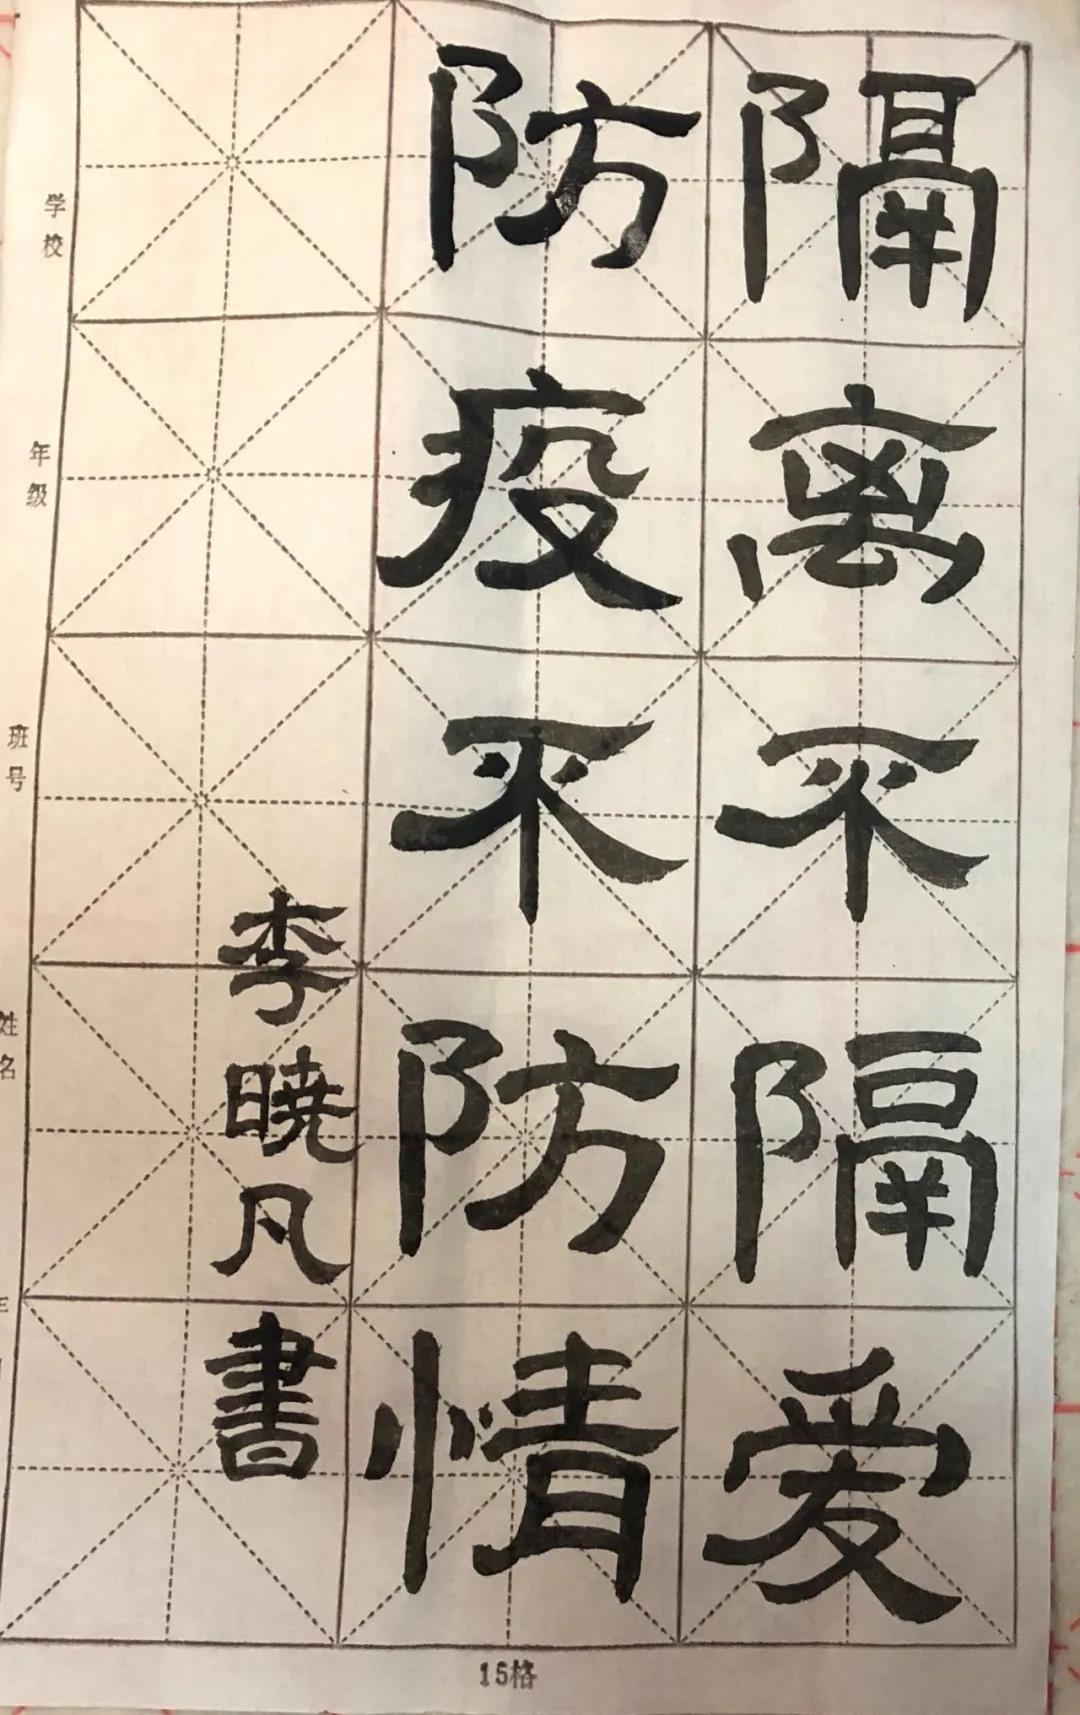 隔离不隔爱
防疫不防情
李晓凡書
学校
年级
班号
姓名
15格